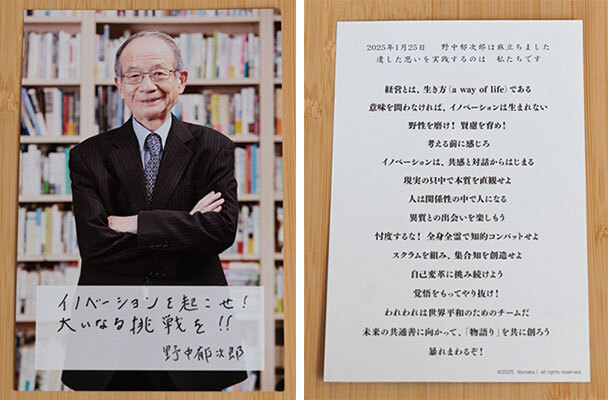 イノベーションを起こせ!
大いなる挑戦を!!
野中郁次郎
2025年1月25日 野中郁次郎は旅立ちました
遺した思いを実践するのは 私たちです
経営とは、生き方(a way of life)である
意味を問わなければ、イノベーションは生まれない
野性を磨け! 賢慮を育め!
考える前に感じろ
イノベーションは、共感と対話からはじまる
現実の只中で本質を直観せよ
人は関係性の中で人になる
異質との出会いを楽しもう
忖度するな! 全身全霊で知的コンバットせよ
スクラムを組み、集合知を創造せよ
自己変革に挑み続けよう
覚悟をもってやり抜け!
われわれは世界平和のためのチームだ
未来の共通善に向かって、「物語り」を共に創ろう
暴れまわるぞ!
©2025 Nonaka I. all rights reserved.